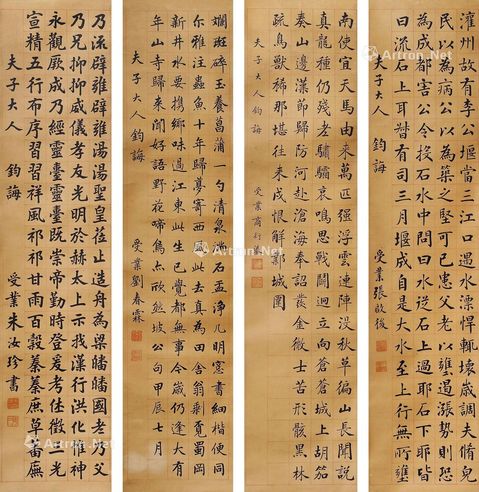 灌州故有李公堰當三江口遇水漂悍輒壞歲調夫脩
民以為病公以為築之堅可已患父老以壅遏漲勢則恐
為成都害公令投石水中問曰水從石上過耶石下耶皆
曰流石上耳督有司三月堰成自是大水至上行無所壅
夫子大人 鈞誨 受業張啟後
南使宜天馬由來萬匹强浮雲連陣没秋草徧山長聞說
真龍種仍殘老驌驦哀鳴思戰鬭迥立向蒼蒼城上胡笳
奏山邊漢節歸防河赴滄海奉詔發金微士苦形骸黑林
疏鳥獸稀那堪往來戍恨解鄴城圍
夫子大人鈞誨 受業商衍鎏
斕斑碎玉養菖蒲一勺清泉滿石盂淨几明窗書細楷便同
尔雅注蟲魚十年歸夢寄西風此去真為田舍翁剩覓蜀岡
新井水要携鄉味過江東此生已覺都無事今歲仍逢大有
年山寺歸來聞好語野花啼鳥亦欣然坡公句甲辰七月
夫子大人鈞誨 受業劉春霖
乃流辟雍辟雍湯湯聖皇莅止造舟為梁皤皤國老乃父
乃兄抑抑威儀孝友光明於赫太上示我漢行洪化惟神
永觀厥成乃經靈臺靈臺既崇帝勤時登爰考休徵三光
宣精五行布序習習祥風祁祁甘雨百穀蓁蓁庶草蕃廡
夫子大人 鈞誨 受業朱汝珍書